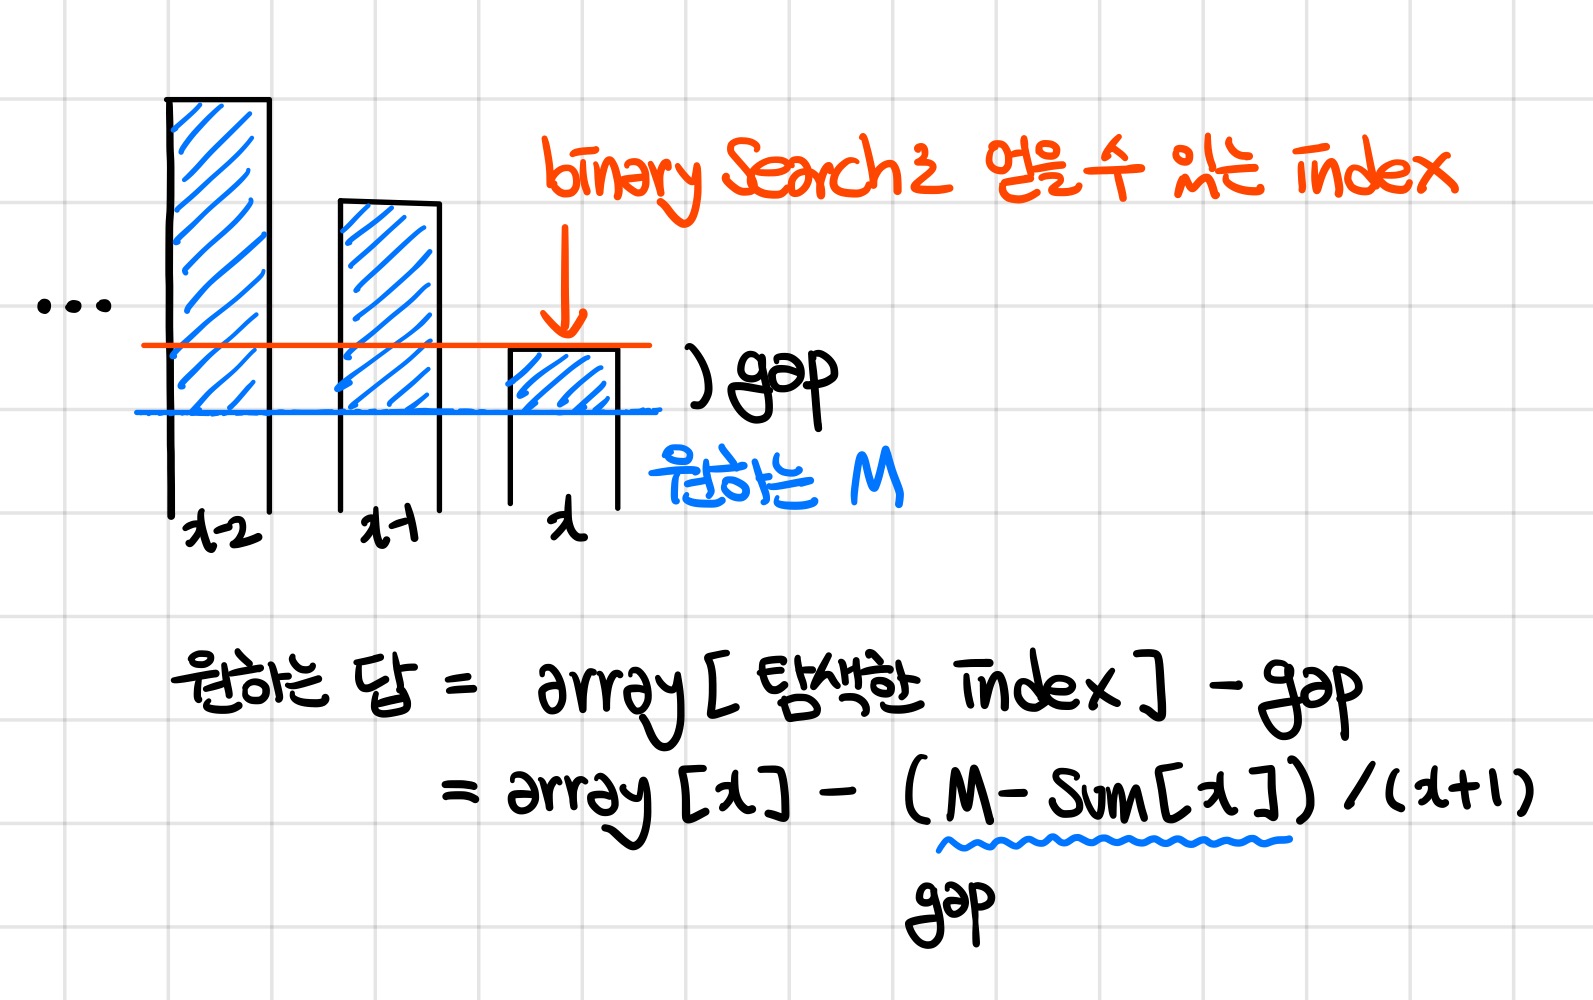 binary Search로 얻을 수 있는 index
...
) gap
원하는 M
x-2 x-1 x
원하는 답 = array [ 탐색한 index ] - gap
= array [x] - (M - Sum[x]) / (x+1)
gap